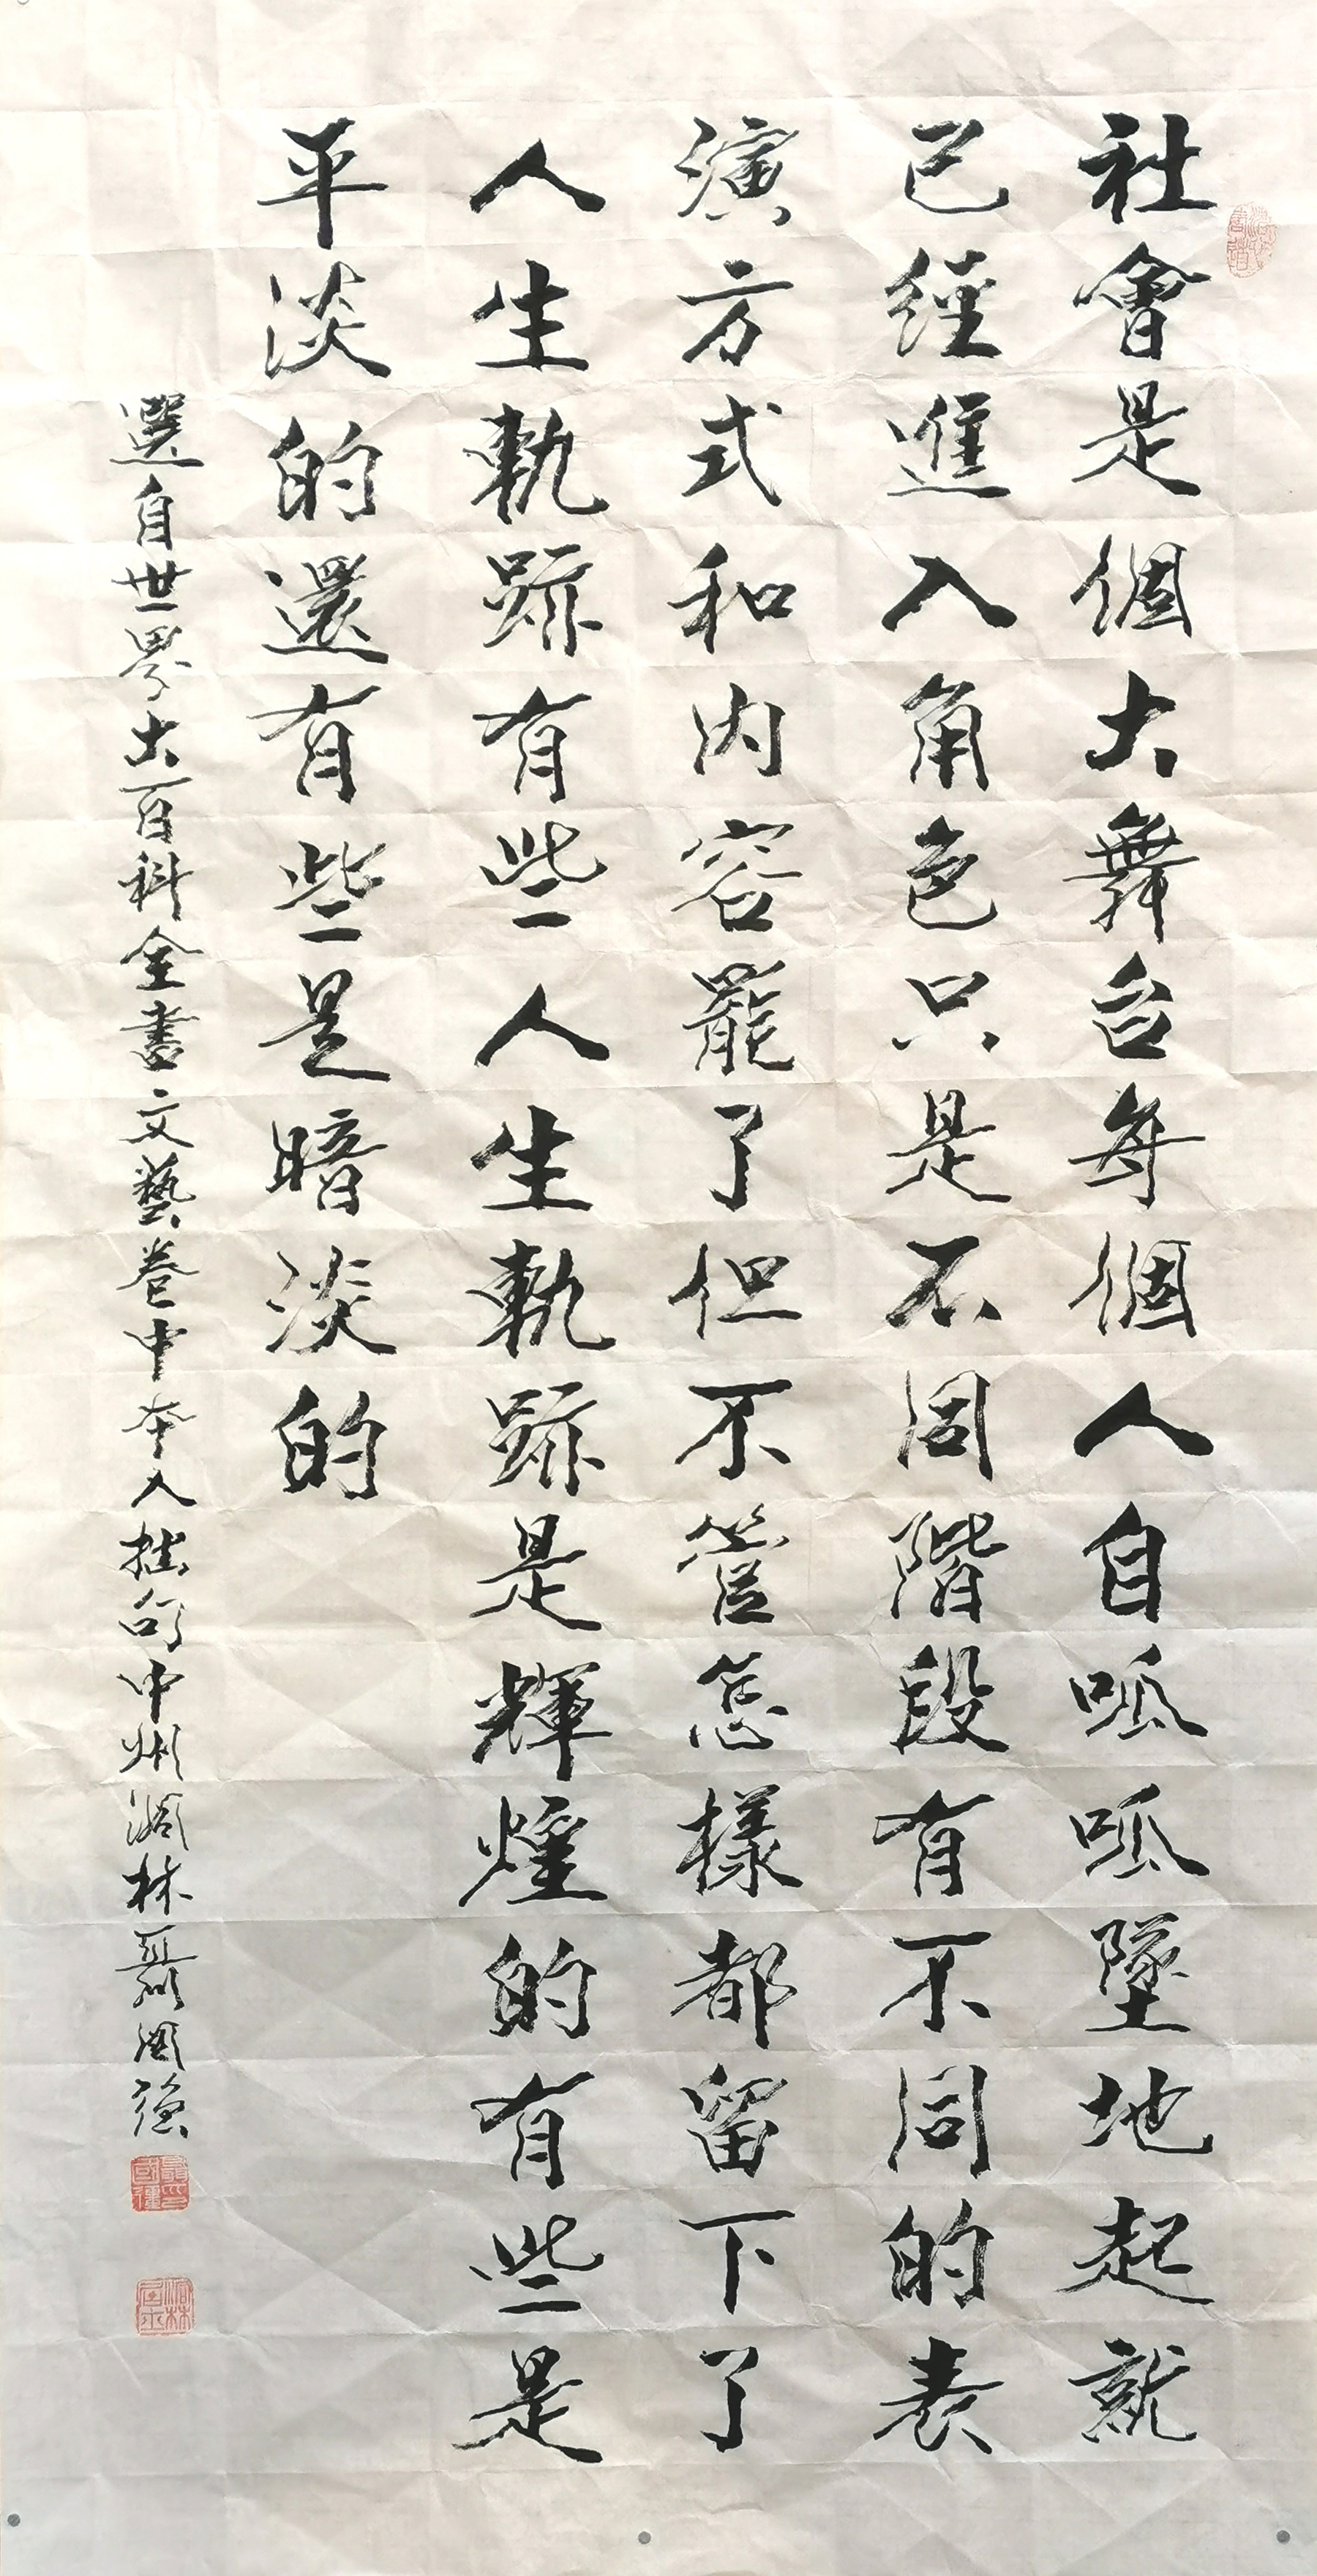 社會是個大舞台每個人自呱呱墜地起就
已經進入角色只是不同階段有不同的表
演方式和內容罷了但不管怎樣都留下了
人生軌跡有些人生軌跡是輝煌的有些是
平淡的還有些是暗淡的
選自世界大百科全書文藝卷中本人拙句中州潁林聶國強